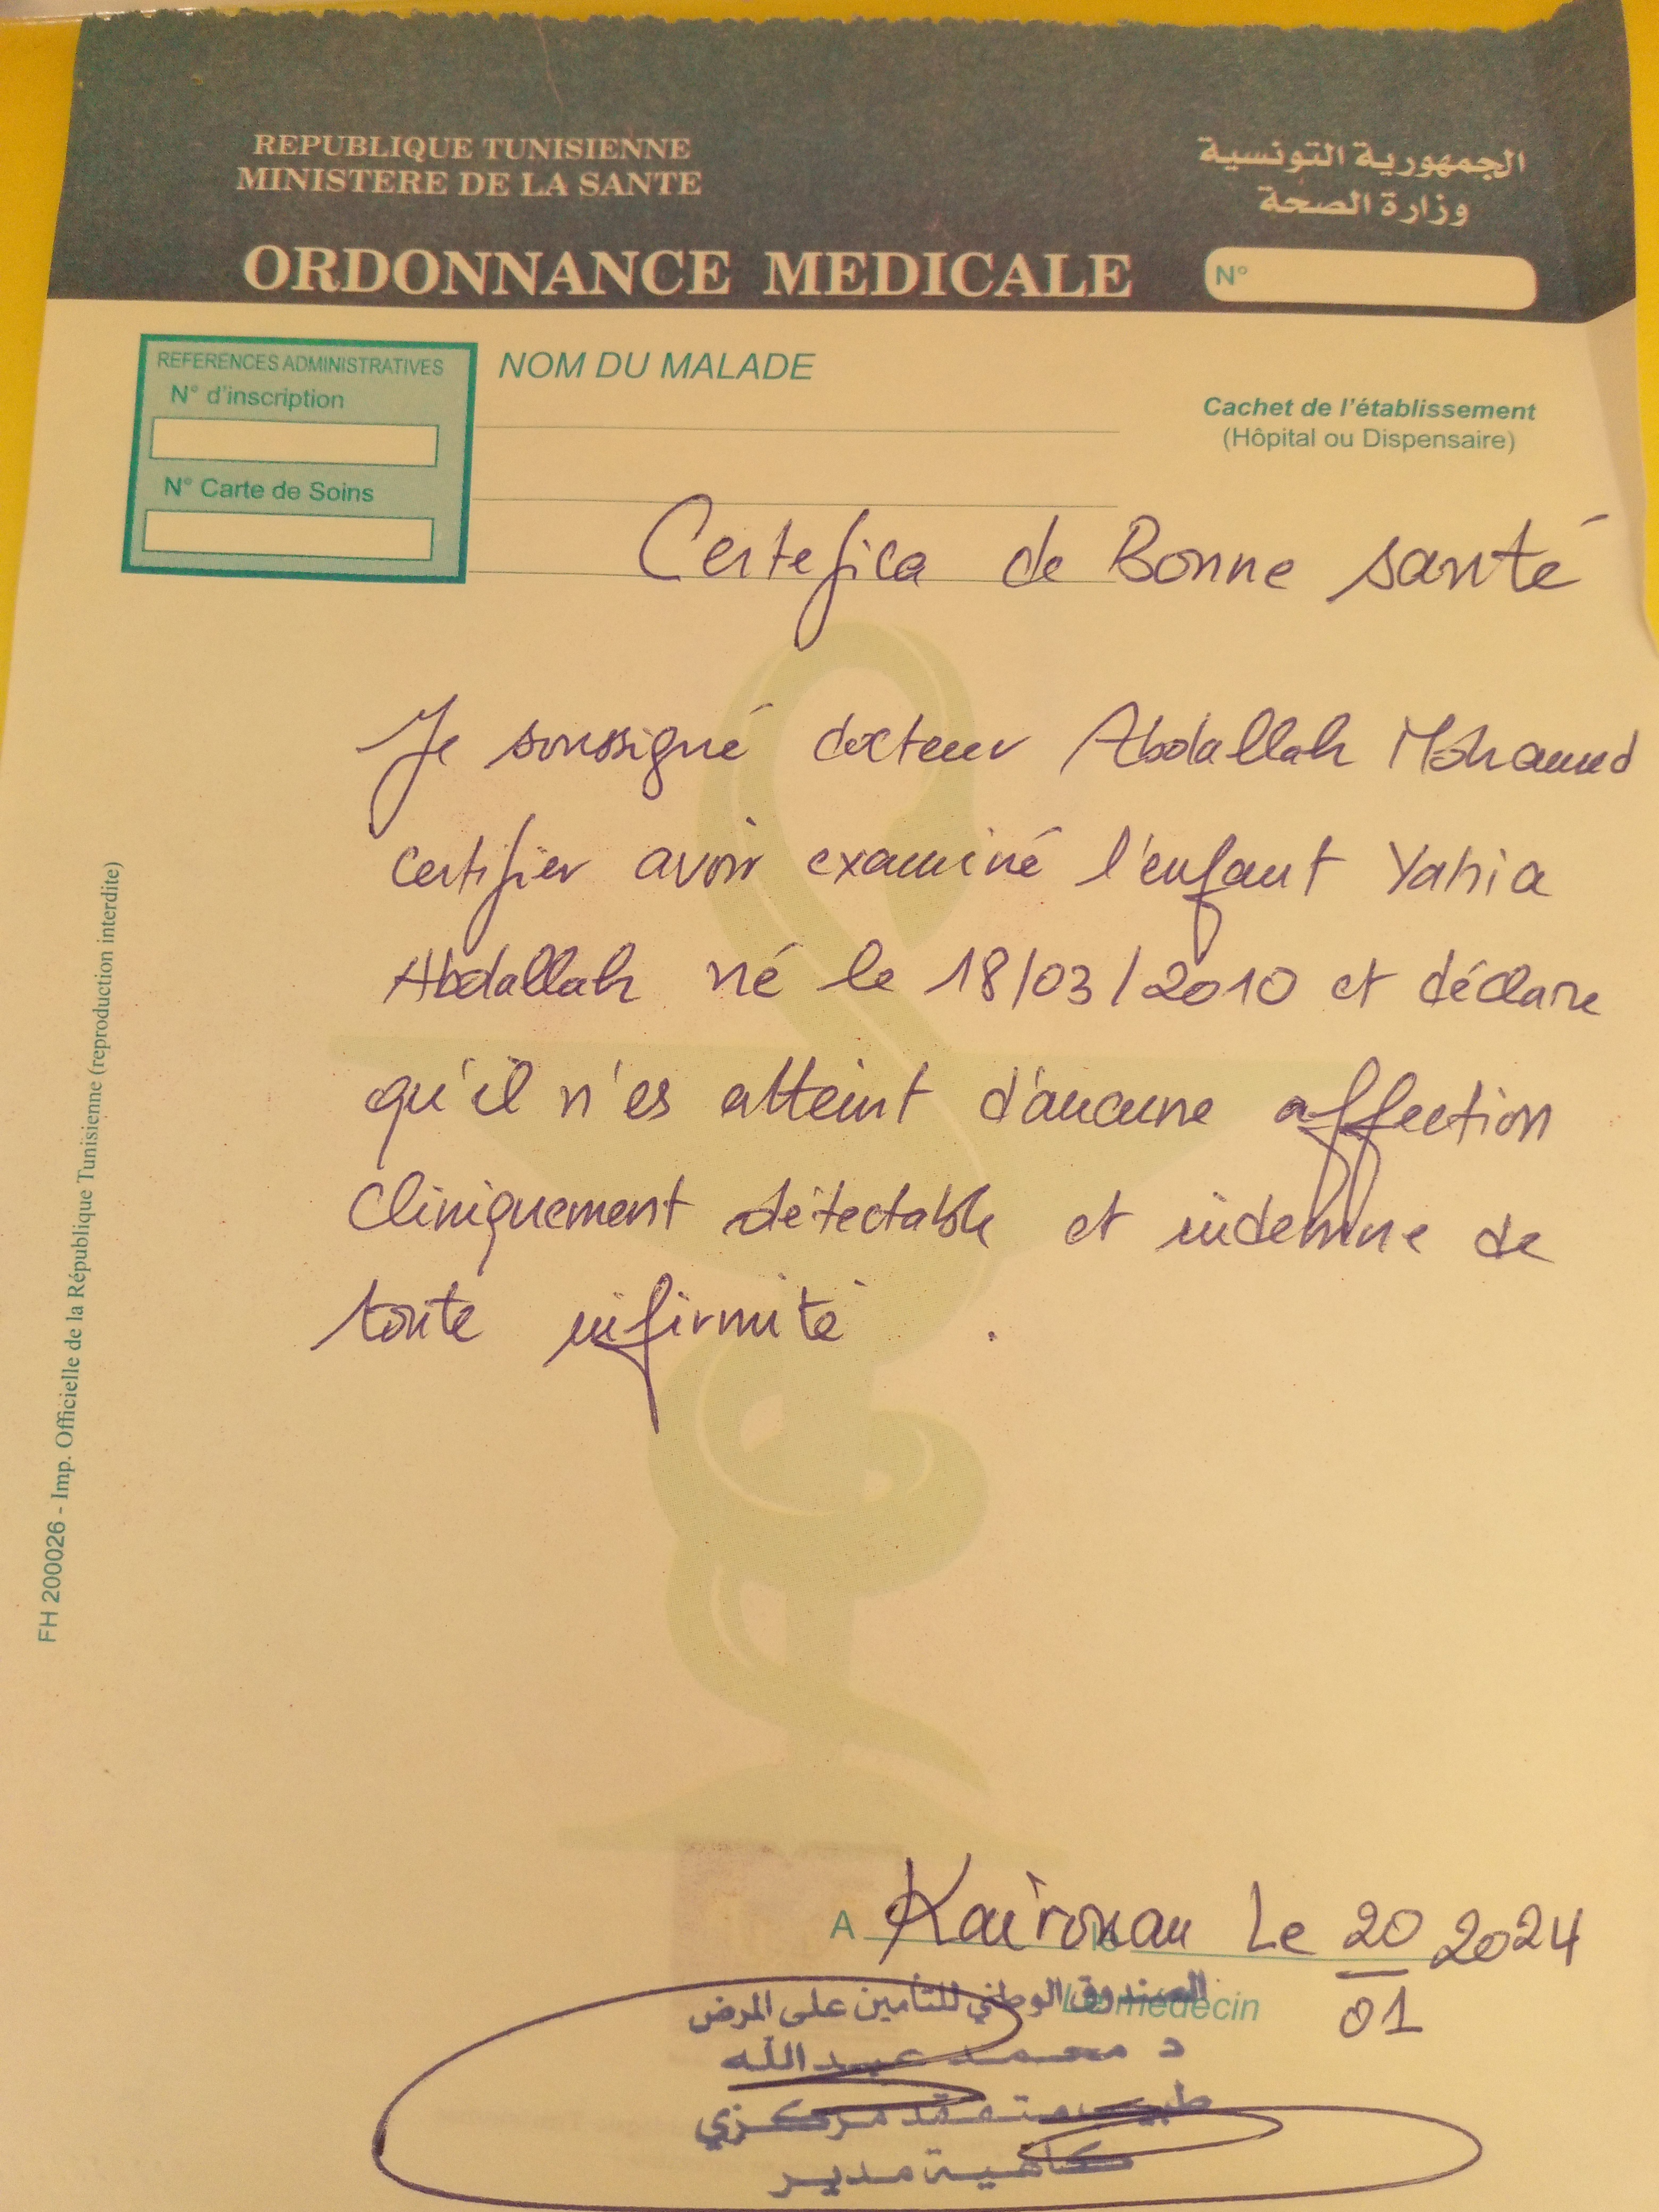 REPUBLIQUE TUNISIENNE
MINISTERE DE LA SANTE
الجمهورية التونسية
وزارة الصحة
ORDONNANCE MEDICALE
N°
REFERENCES ADMINISTRATIVES
N° d'inscription
N° Carte de Soins
NOM DU MALADE
Cachet de l'établissement
(Hôpital ou Dispensaire)
Certefica de Bonne santé
Je soussigné docteur Abdallah Mohamed
certifier avoir examiné l'enfant Yahia
Abdallah né le 18/03/2010 et déclare
qu'il n'es atteint d'aucune affection
Cliniquement détectable et indemne de
toute infirmité .
FH 200026 - Imp. Officielle de la République Tunisienne (reproduction interdite)
A Kairouan Le 20 2024
01
Le médecin
الصندوق الوطني للتأمين على المرض
د محمد عبد الله
طبيب متفقد مركزي
كاهية مدير